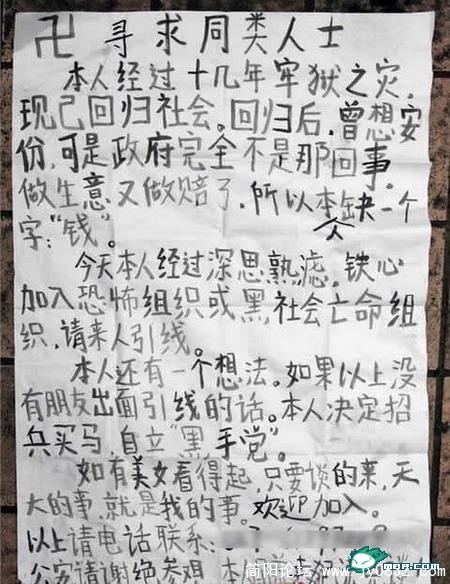 卍 寻求同类人士
本人经过十几年牢狱之灾,
现己回归社会。回归后,曾想安
份,可是政府完全不是那回事。
做生意又做赔了,所以本人缺一个
字:“钱”。
今天本人经过深思熟虑,铁心
加入恐怖组织或黑社会亡命组
织,请来人引线。
本人还有一个想法。如果以上没
有朋友出面引线的话。本人决定招
兵买马,自立“黑手党”。
如有美女看得起,只要谈的来,天
大的事,就是我的事。欢迎加入。
以上请电话联系:
公安请谢绝参观。本
简阳论坛